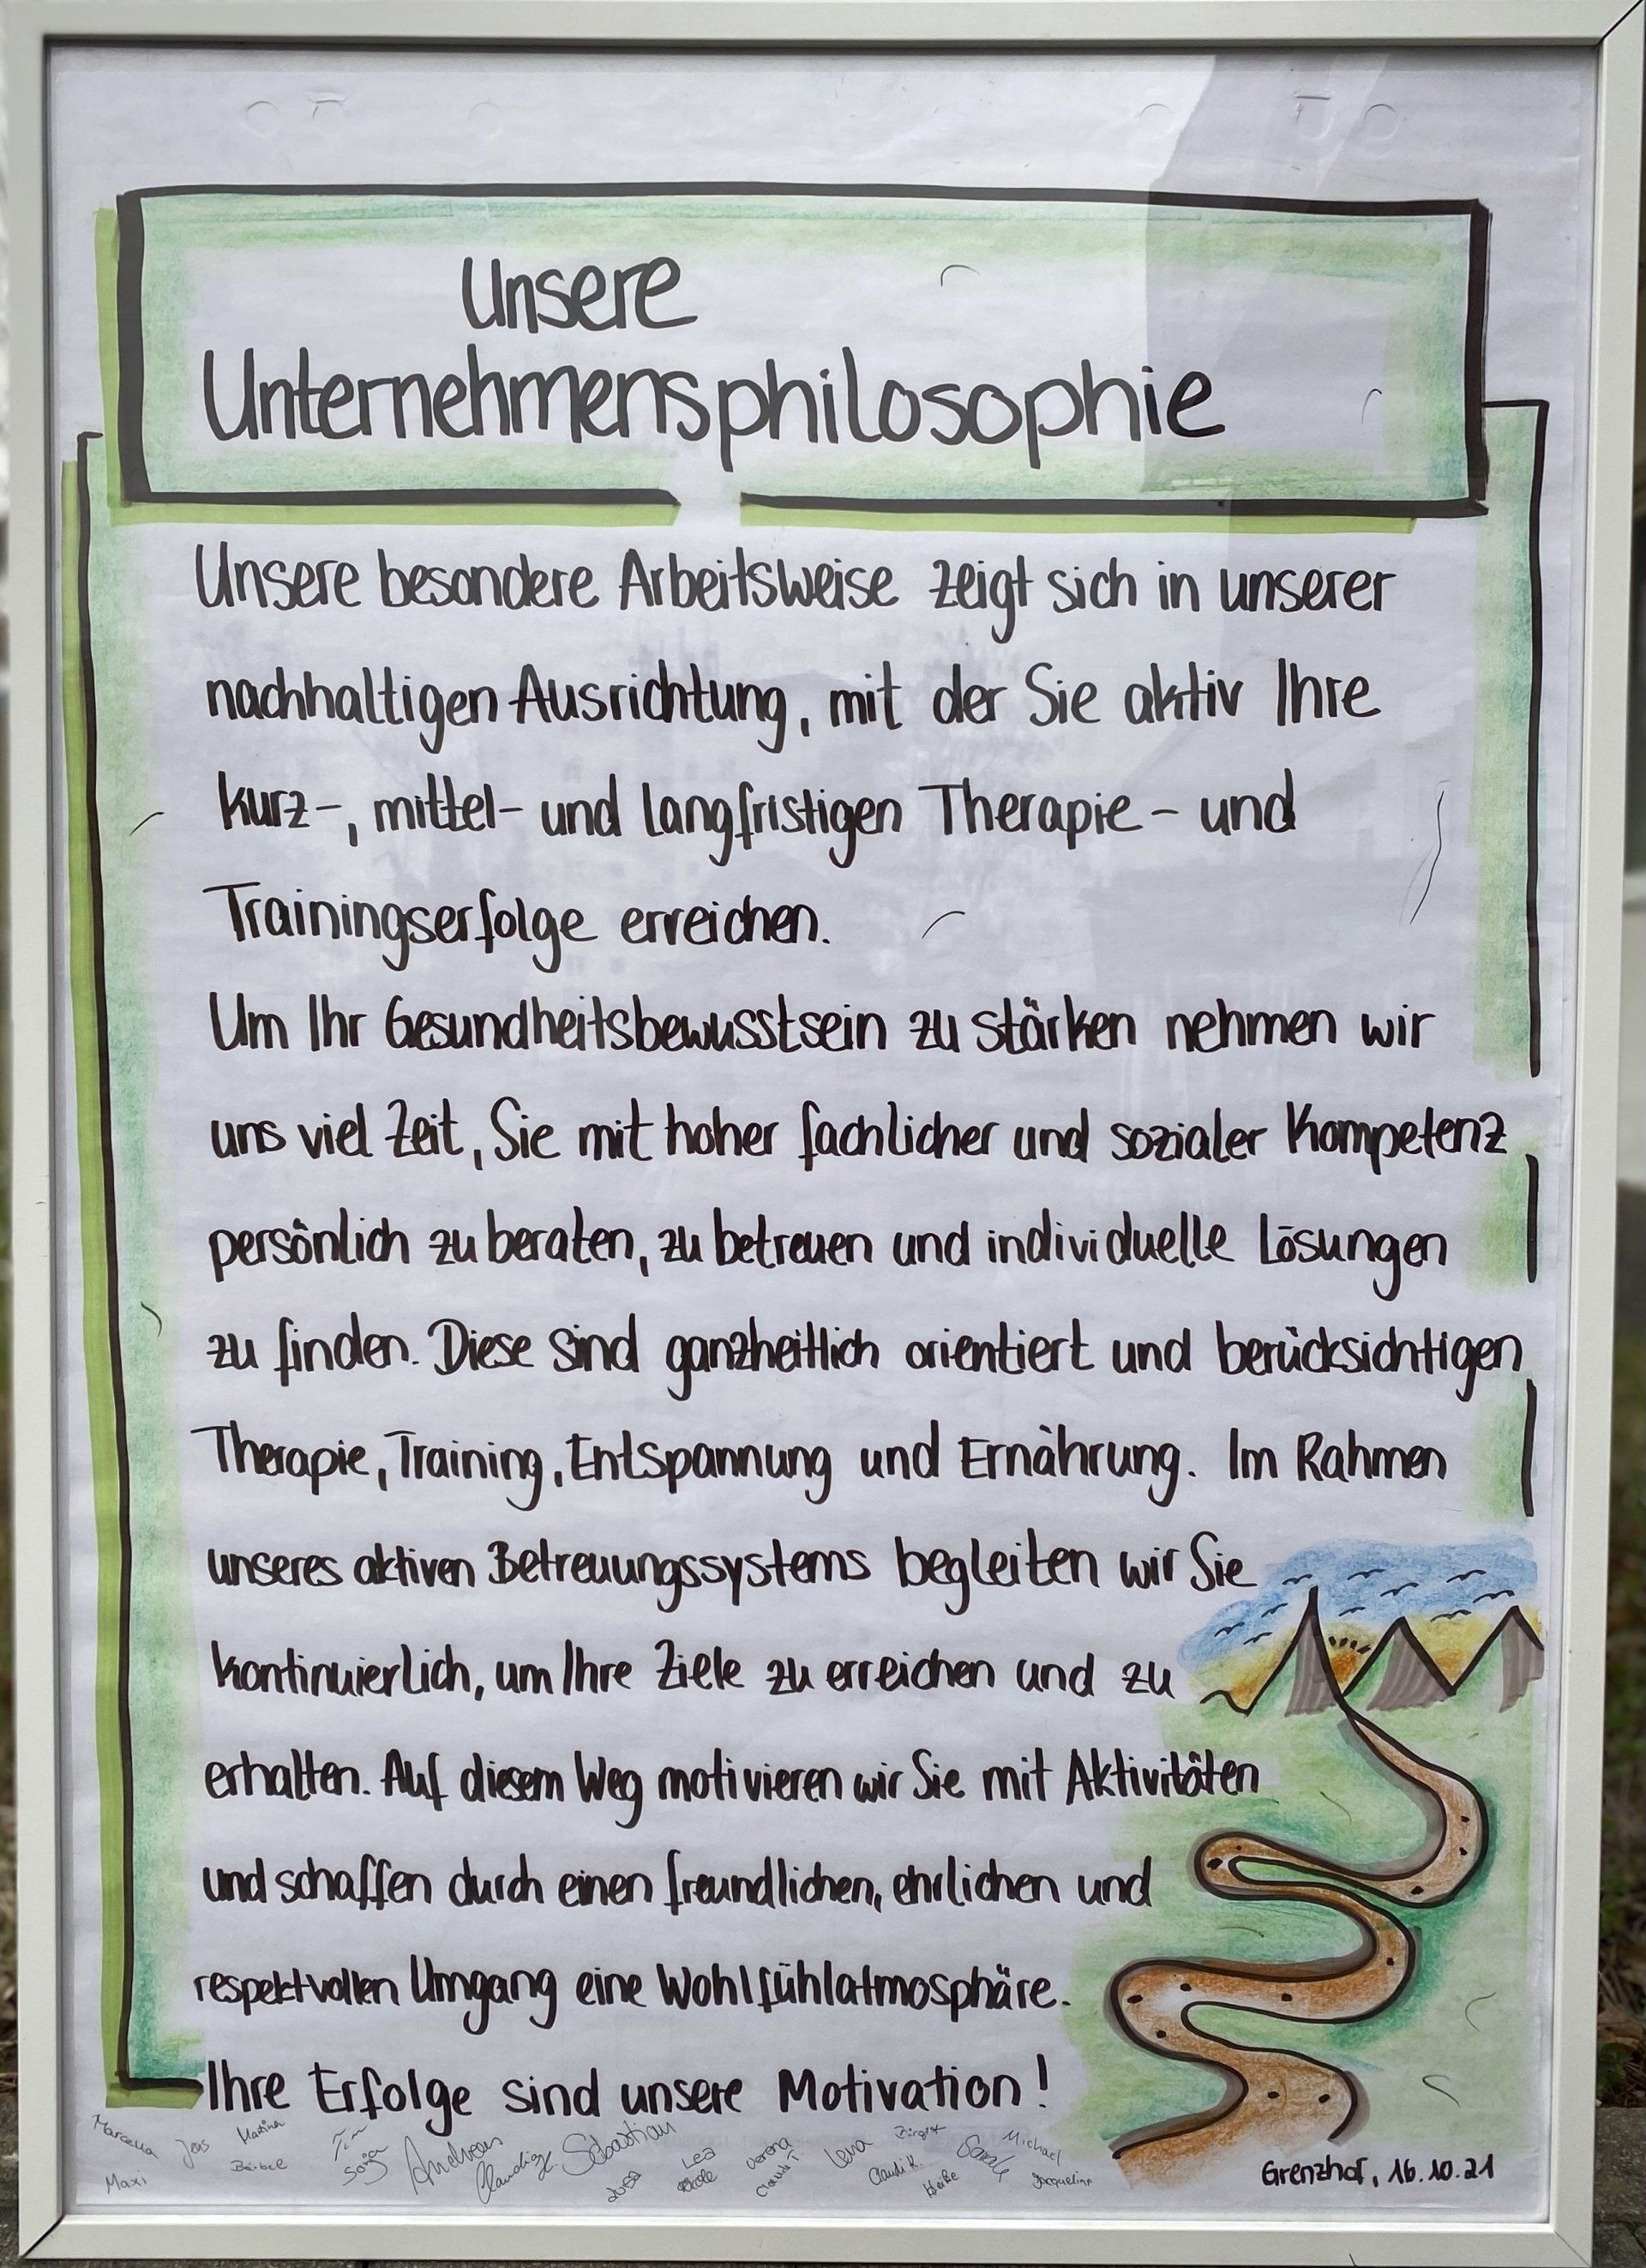 Unsere
Unternehmensphilosophie
Unsere besondere Arbeitsweise zeigt sich in unserer
nachhaltigen Ausrichtung, mit der Sie aktiv Ihre
kurz-, mittel- und langfristigen Therapie- und
Trainingserfolge erreichen.
Um Ihr Gesundheitsbewusstsein zu stärken nehmen wir
uns viel Zeit, Sie mit hoher fachlicher und sozialer Kompetenz
persönlich zu beraten, zu betreuen und individuelle Lösungen
zu finden. Diese sind ganzheitlich orientiert und berücksichtigen
Therapie, Training, Entspannung und Ernährung. Im Rahmen
unseres aktiven Betreuungssystems begleiten wir Sie
kontinuierlich, um Ihre Ziele zu erreichen und zu
erhalten. Auf diesem Weg motivieren wir Sie mit Aktivitäten
und schaffen durch einen freundlichen, ehrlichen und
respektvollen Umgang eine Wohlfühlatmosphäre.
Ihre Erfolge sind unsere Motivation!
Marcella Jens Martina Tim Andreas Sebastian Lea Verena Lena Birgit Michael
Maxi Bärbel Sonja Luisa Claudi K. Heike Jacqueline
Grenzhof, 16.10.21